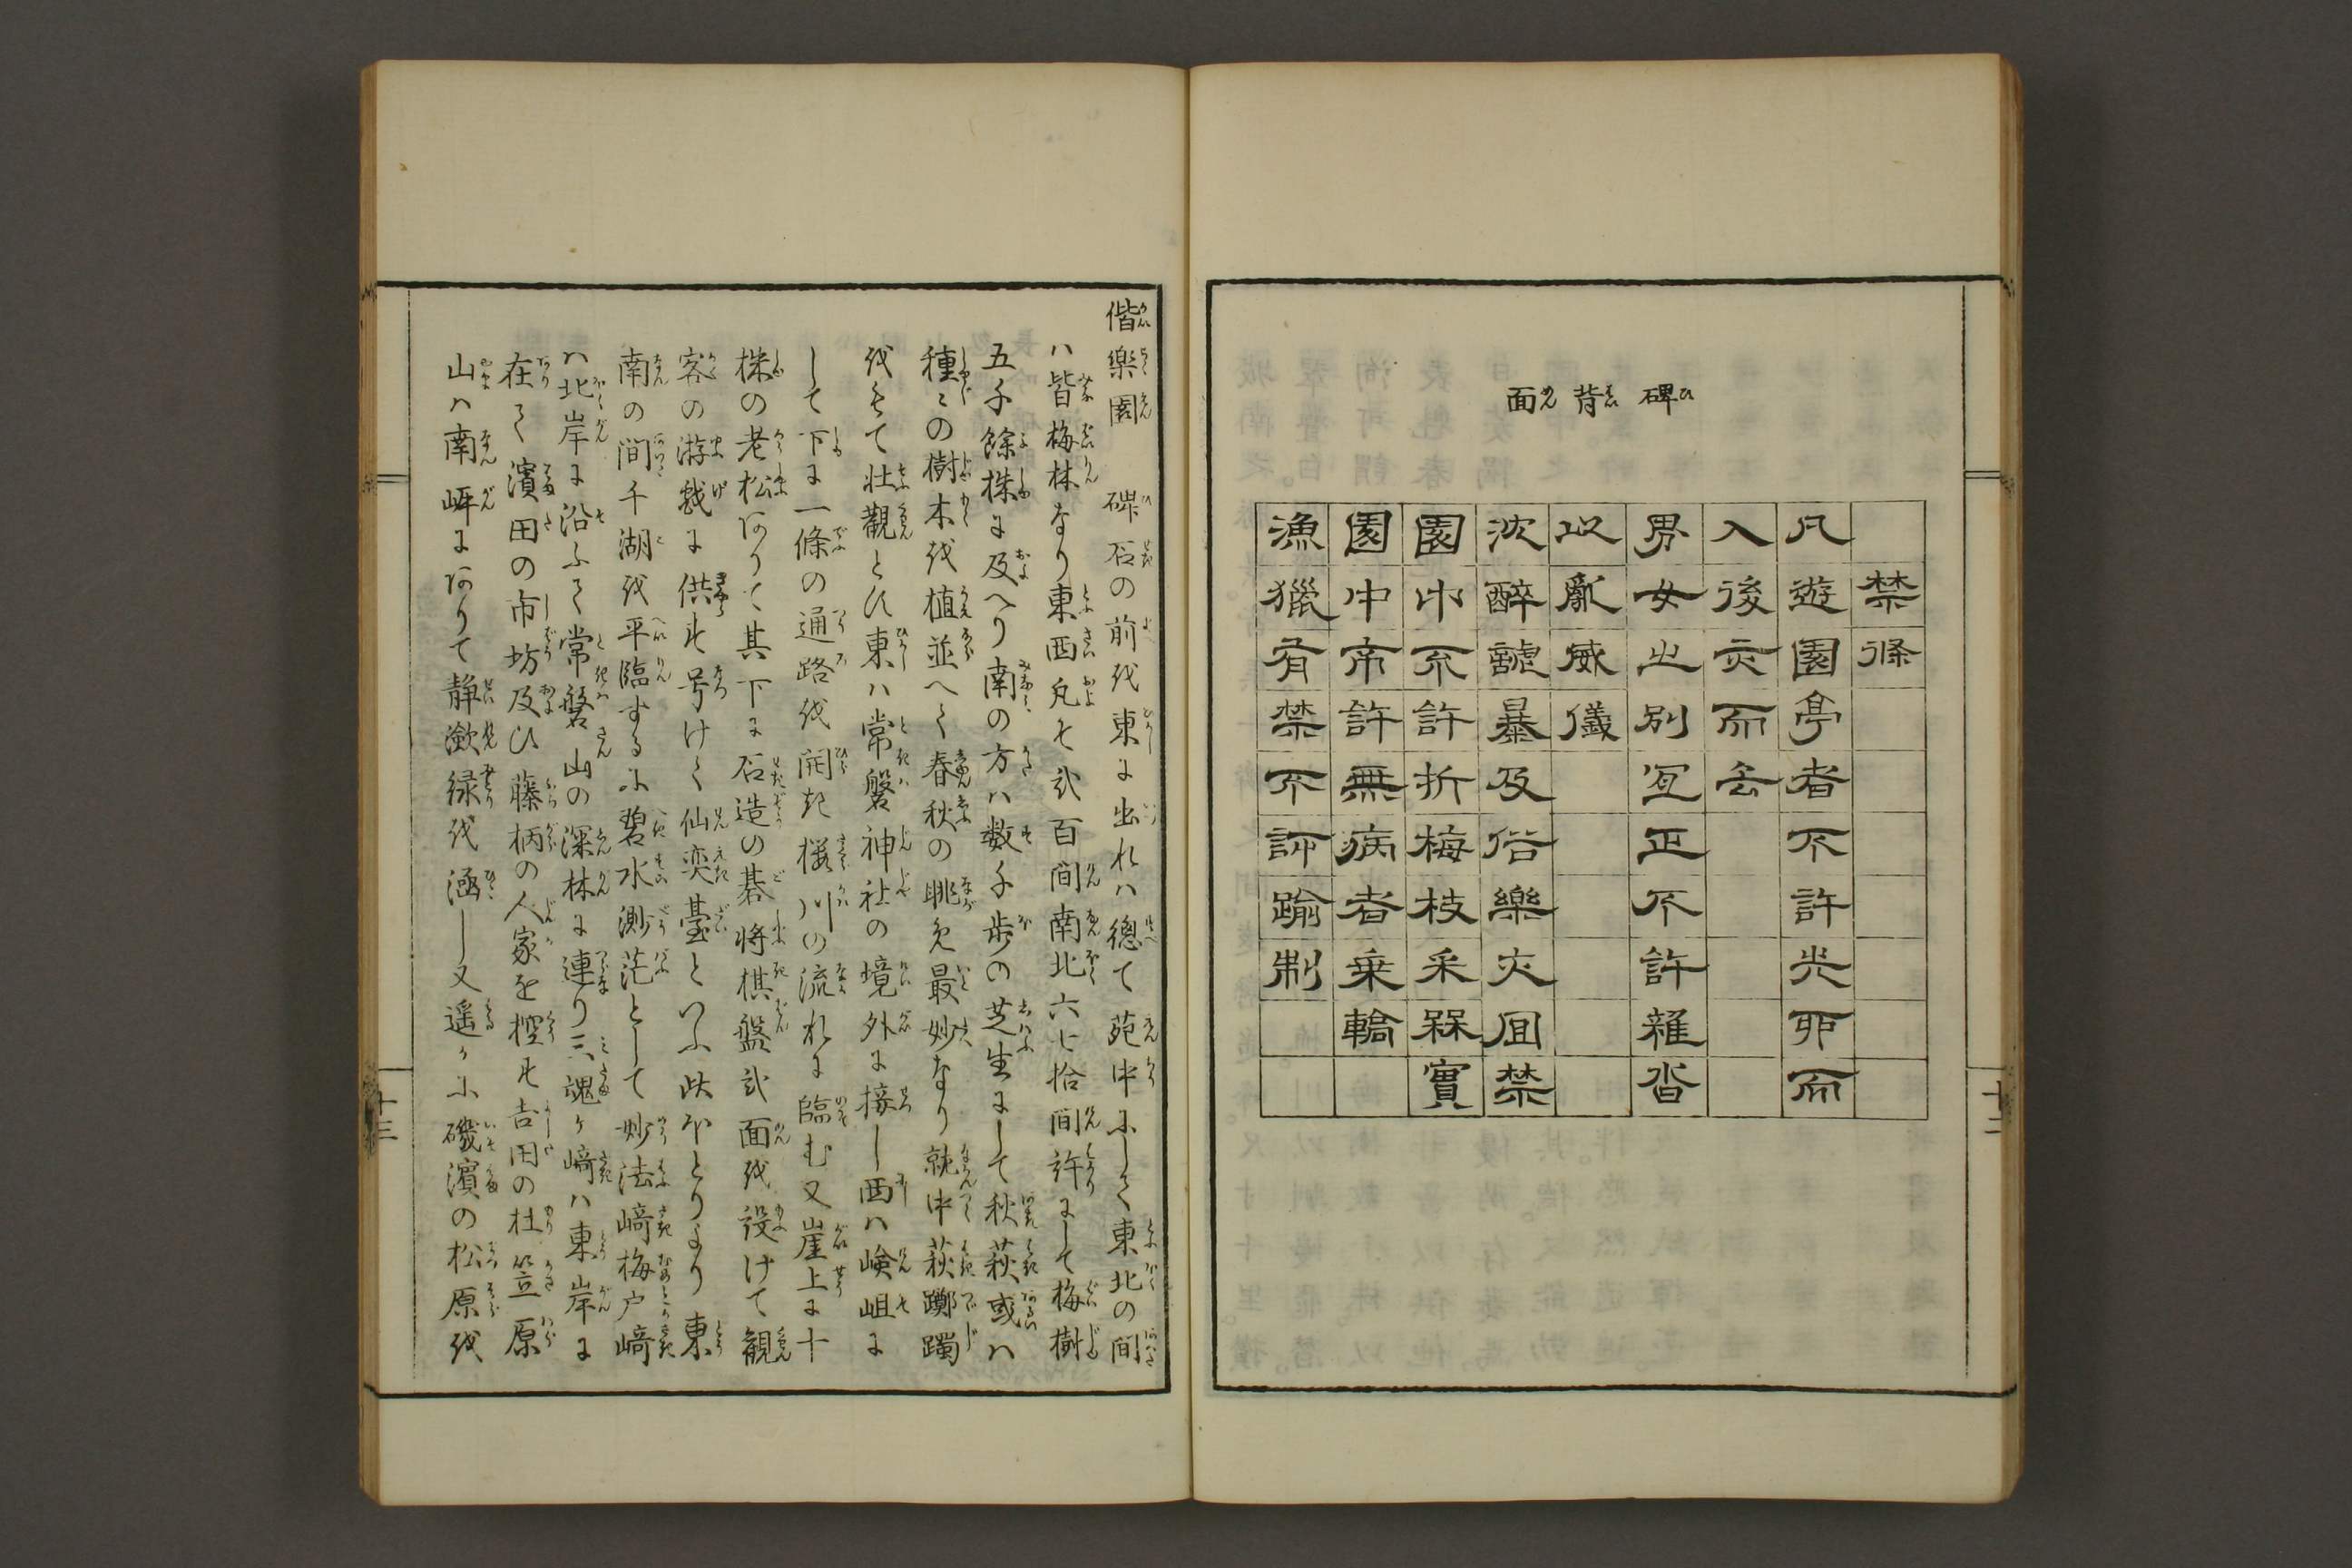 碑背面
禁條
凡遊園亭者不許先卯而
入後亥而去
男女之別宜正不許雜沓
以亂威儀
沈醉謔暴及俗樂亦固禁
園中不許折梅枝采梅實
園中不許無病者乗轎
漁獵有禁不許踰制
十二
偕樂園碑石の前越東に出れハ總て苑中にして東北の間
ハ皆梅林なり東西凡そ弐百間南北六七拾間許にして梅樹
五千餘株に及へり南の方ハ数千歩の芝生にして秋萩或ハ
種〻の樹木越植並へて春秋の眺免最妙なり就中萩躑躅
越もて壮觀とす東ハ常磐神社の境外に接し西ハ嶮岨に
して下に一條の通路越開起桜川の流れに臨む又崖上に十
株の老松ありて其下に石造の碁将棋盤弐面越設けて観
客の游戯に供す号けて仙奕臺といふ此ほとりより東
南の間千湖越平臨するに碧水渺茫として妙法﨑梅戸﨑
ハ北岸に沿ふて常磐山の深林に連り三魂ヶ﨑ハ東岸に
在て濱田の市坊及ひ藤柄の人家を控す吉田の杜笠原
山ハ南岸にありて静瀲緑越涵し又遥かに磯濱の松原越
十三